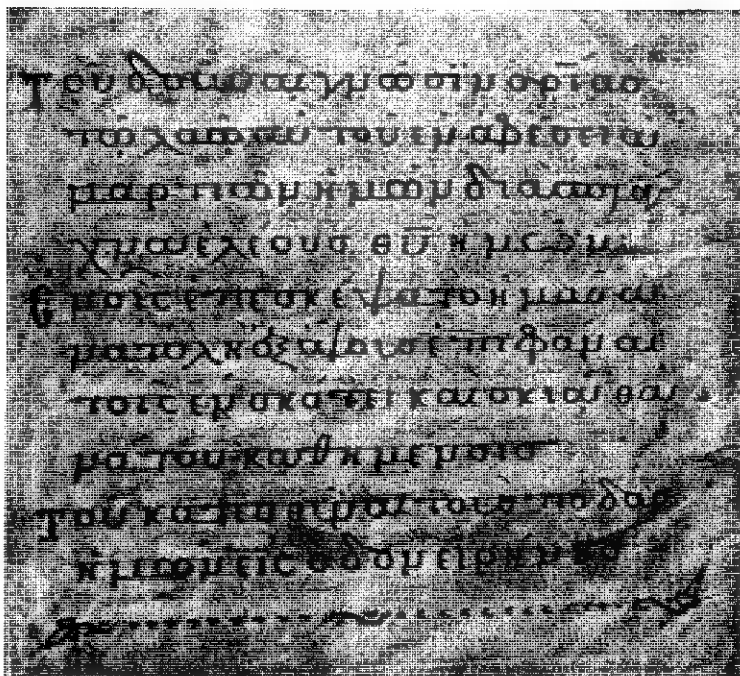 Τοῦ δοῦναι γνῶσιν σρ̅ίας
τῶ λαῶ αὐτοῦ ἐν ἀφέσει ἁ
μαρτιῶν ἡμῶν διὰ σπλά
χνα ἐλέους θ̅υ̅ ἡμῶν·
Ἐν οἷς ἐπεσκέψατο ἡμᾶς ἀ
νατολὴ ἐξ ὕψους ἐπιφᾶναι
τοῖς ἐν σκότει καὶ σκιᾶ θα
νάτου καθημένοις
Τοῦ κατευθῦναι τοὺς πόδας
ἡμῶν εἰς ὁδὸν εἰρήνης